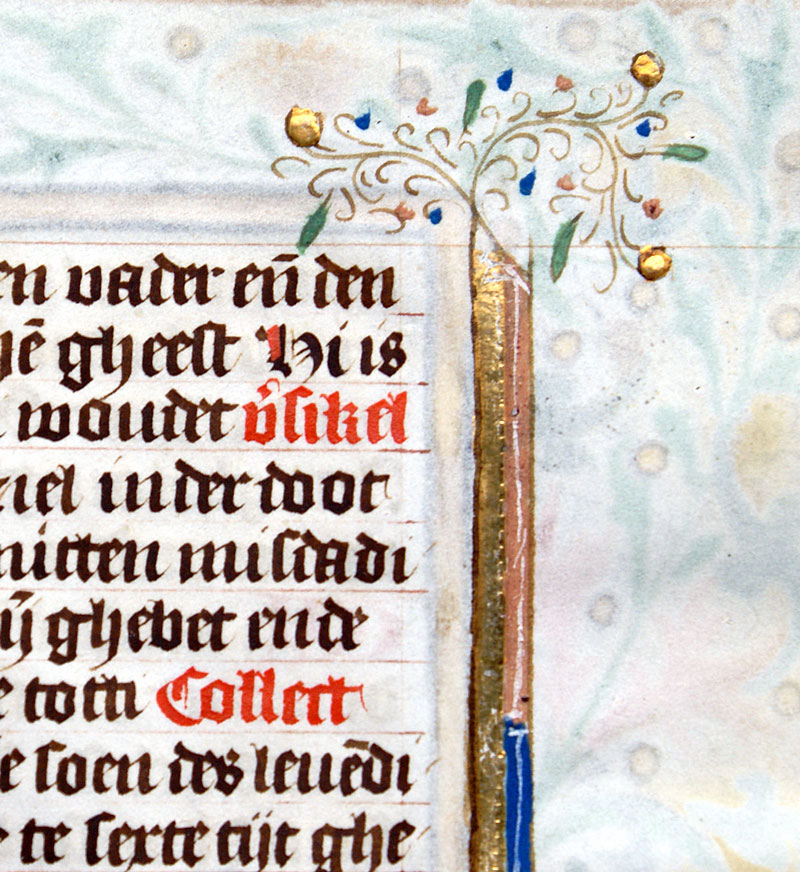 en vader en̄ den
hē gheest Hi is
woudet v̓sikel
ziel in der doot
mitten misdadi
ij ghebet ende
e totti Collect
e soen des leuēdi
e te sexte tijt ghe